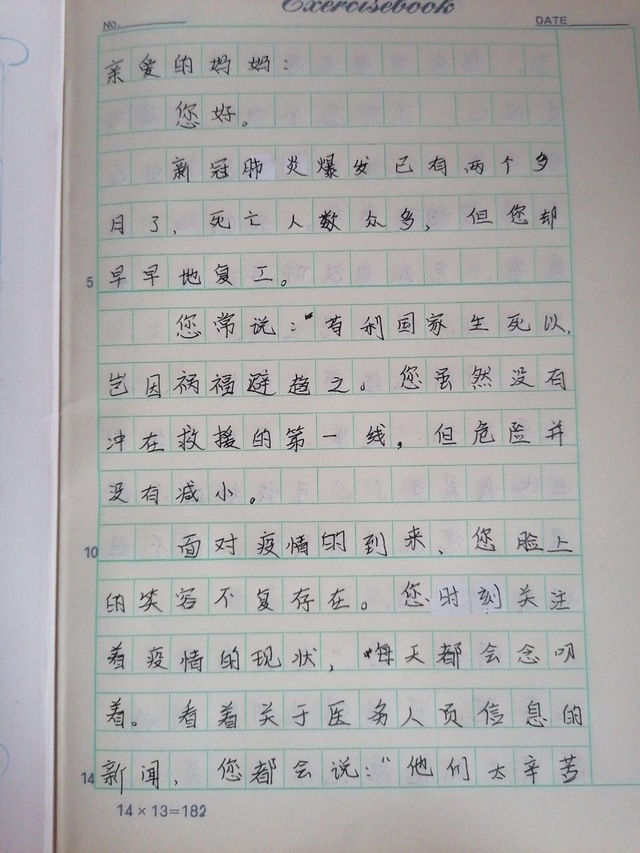 Exercisebook
No.
DATE
亲爱的妈妈：
您好。
新冠肺炎爆发已有两个多
月了，死亡人数众多，但您却
5 早早地复工。
您常说：“苟利国家生死以，
岂因祸福避趋之。您虽然没有
冲在救援的第一线，但危险并
没有减小。
10 面对疫情的到来、您脸上
的笑容不复存在。您时刻关注
着疫情的现状，每天都会念叨
着。看着关于医务人员信息的
14 新闻，您都会说：“他们太辛苦
14×13=182